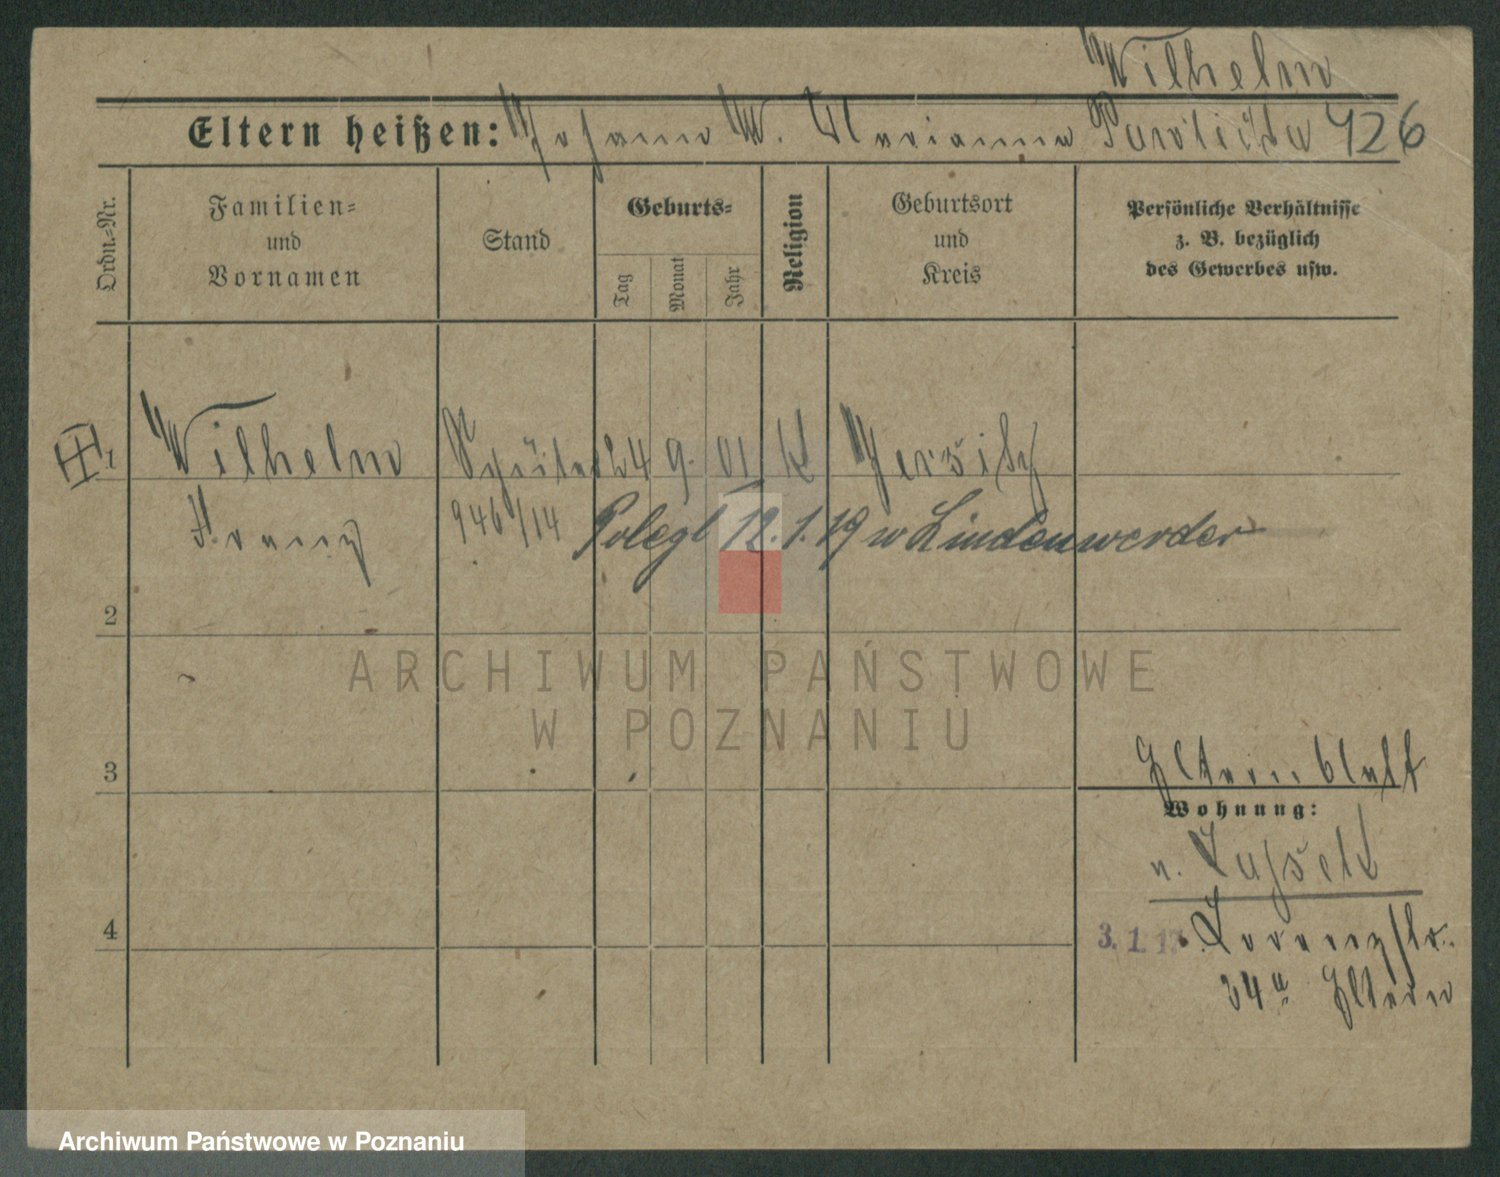 Wilhelm
Eltern heißen: Johann W. Marianna 426
Ordn.-Nr.
Familien-
und
Vornamen
Stand
Geburts-
Tag
Monat
Jahr
Religion
Geburtsort
und
Kreis
Persönliche Verhältnisse
z. B. bezüglich
des Gewerbes usw.
1 Wilhelm 24 9. 01 K Jersitz
Franz 946/14 Polegl 12.1.19 w Lindenwerder
2
ARCHIWUM PAŃSTWOWE
W POZNANIU
3 Elternblatt
Wohnung:
n.
4 3.1.17. Lorenzstr.
34a Eltern
Archiwum Państwowe w Poznaniu